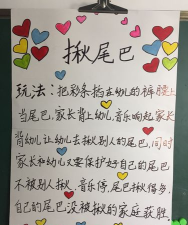 揪尾巴
玩法：把彩条掐在幼儿的裤腰上
当尾巴，家长背上幼儿，音乐响起家长
背幼儿让幼儿去揪别人的尾巴，同时
家长和幼儿又要保护好自己的尾巴
不被别人揪，音乐停，尾巴揪得多，
自己的尾巴没被揪的家庭获胜